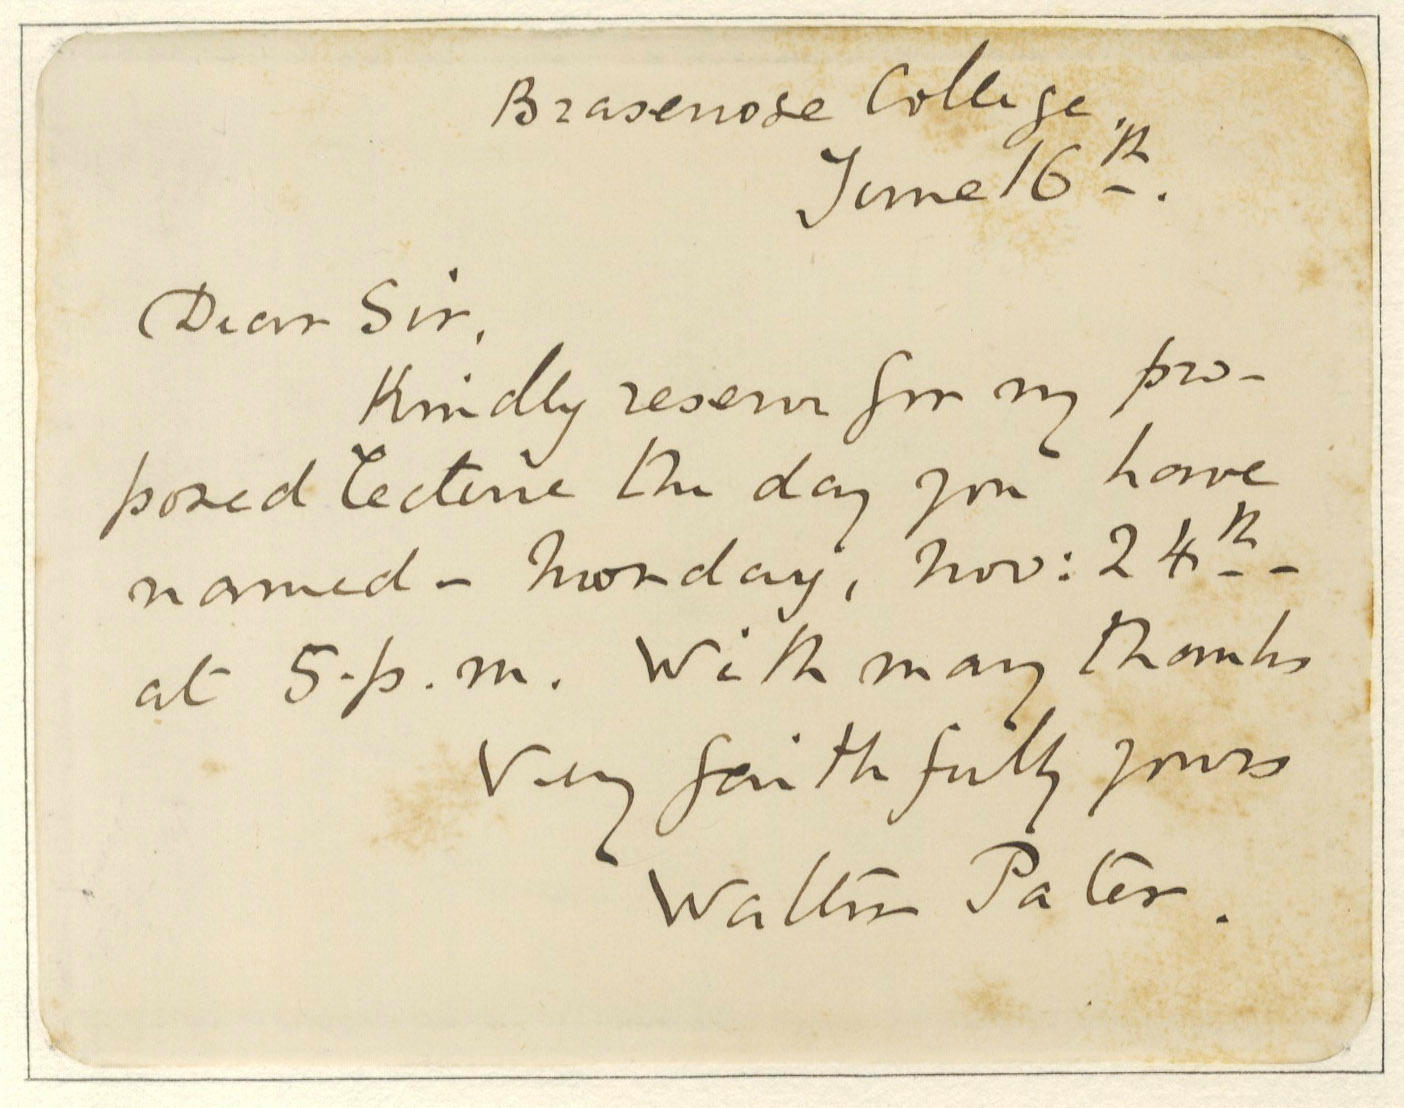 Brasenose College,
June 16th.
Dear Sir,
Kindly reserve for my pro-
posed lecture the day you have
named - Monday, Nov: 24th -
at 5.p.m. With many thanks
Very faithfully yours
Walter Pater.